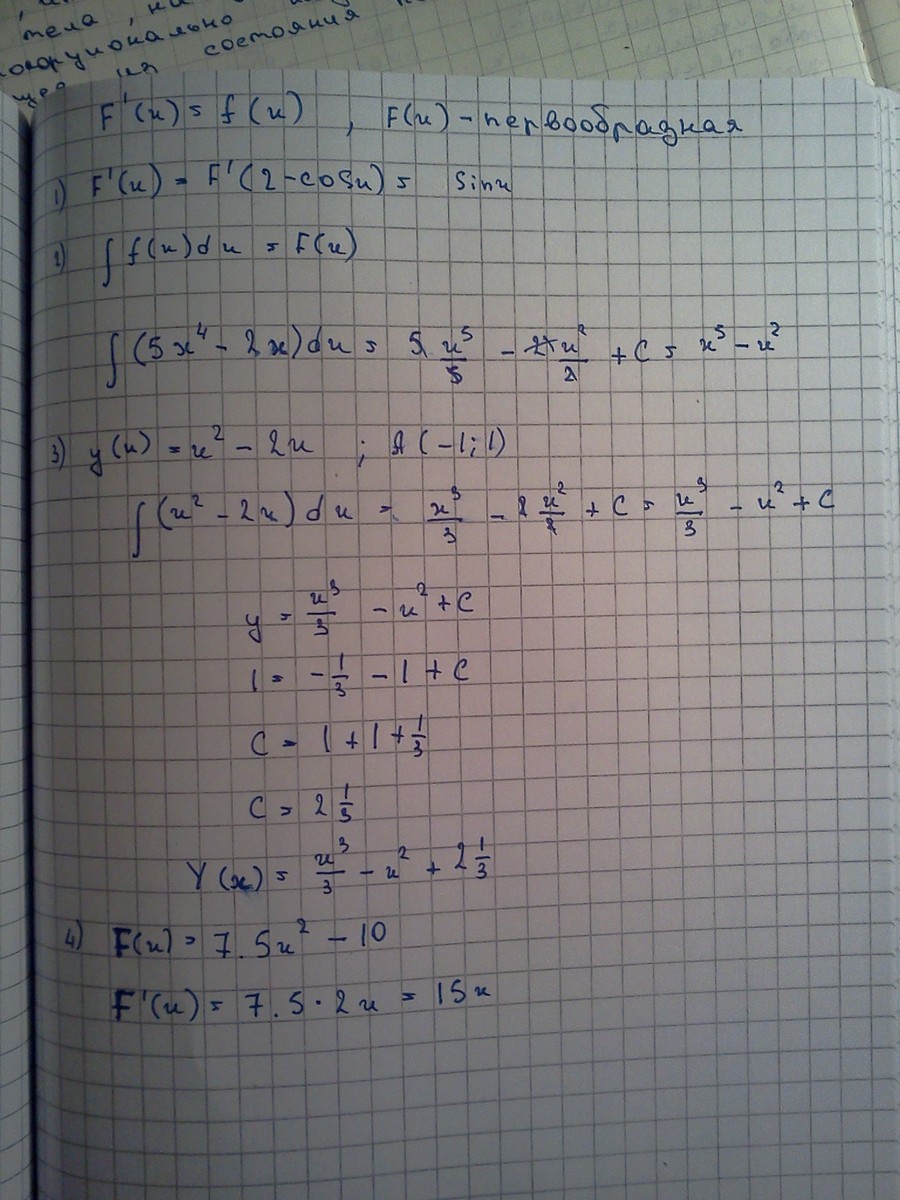 тела, на
состояния
F'(x) = f(x) , F(x) - первообразная
1) F'(x) = F'(2-cosx) = sinx
2) ∫ f(x)dx = F(x)
∫ (5x⁴ - 2x)dx = 5 x⁵/5 - 2x²/2 + C = x⁵ - x²
3) y(x) = x² - 2x ; A(-1; 1)
∫ (x² - 2x)dx = x³/3 - 2 x²/2 + C = x³/3 - x² + C
y = x³/3 - x² + C
1 = -1/3 - 1 + C
C = 1 + 1 + 1/3
C = 2 1/3
Y(x) = x³/3 - x² + 2 1/3
4) F(x) = 7.5x² - 10
F'(x) = 7.5 · 2x = 15x